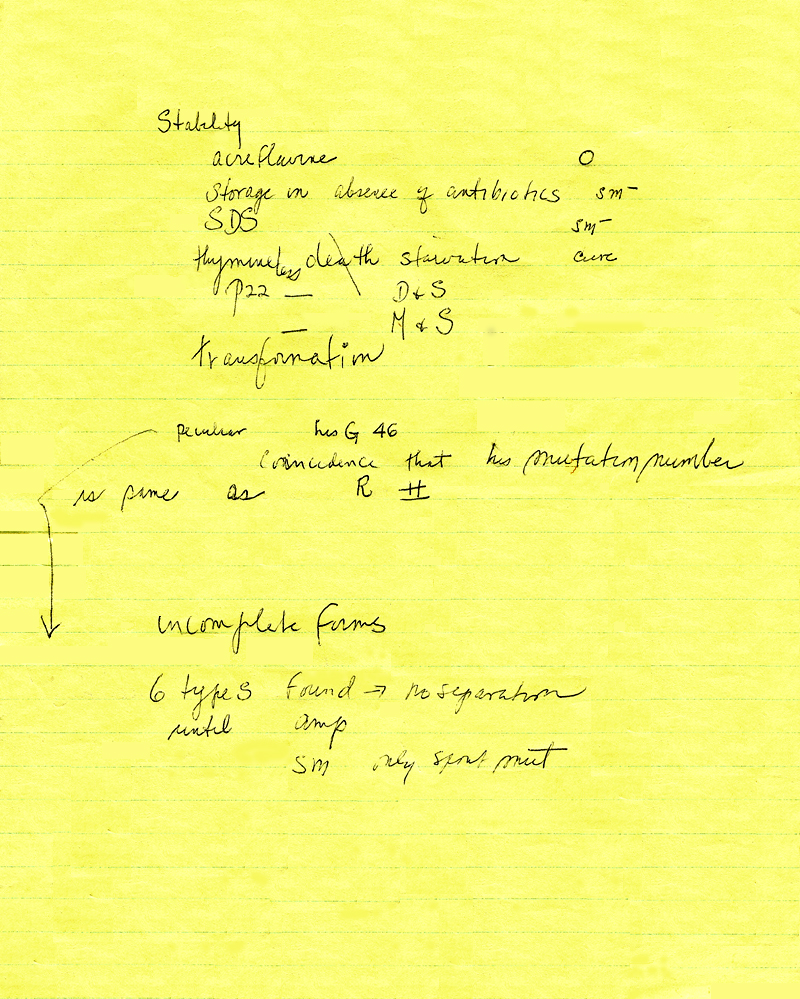 Stability
acriflavine O
Storage in absence of antibiotics sm⁻
SDS sm⁻
thymineless death starvation cure
P22 — D & S
— M & S
transformation
peculiar his G 46
Coincidence that his mutation number
is same as R #
incomplete forms
6 types found → no separation
until amp
sm only spont mut